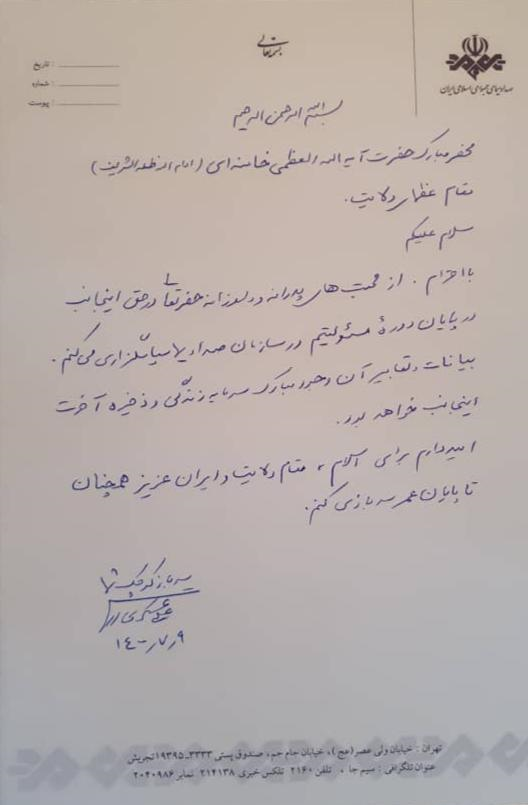 بسمه تعالی
صدا و سیمای جمهوری اسلامی ایران
تاریخ :
شماره :
پیوست :
بسم الله الرحمن الرحیم
محضر مبارک حضرت آیه الله العظمی خامنه‌ای (ادام الله ظله الشریف)
مقام عظمای ولایت.
سلام علیکم
با احترام. از محبت‌های پدرانه و دلسوزانه حضرتعالی در حق اینجانب
در پایان دورۀ مسئولیتم در سازمان صدا و سیما سپاسگزاری می‌کنم.
بیانات و تعابیر آن وجود مبارک سرمایه زندگی و ذخیره آخرت
اینجانب خواهد بود.
امیدوارم برای اسلام، مقام ولایت و ایران عزیز همچنان
تا پایان عمر سربازی کنم.
سرباز کوچک شما
۱۴۰۰/۷/۹
تهران : خیابان ولی عصر (عج)، خیابان جام جم، صندوق پستی ۳۳۳۳-۱۹۳۹۵ تجریش
عنوان تلگرافی : سیم جا ، تلفن ۲۱۶۰ تلکس خبری ۲۱۴۱۳۸ نمابر ۲۰۴۰۹۸۶